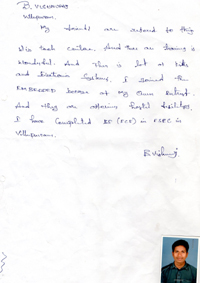 B. VISHNURAJ
Villupuram.
My friends are refered to this
Wis tech centre. And there are training is
wonderful. And there is lot of kits
and Electronic Systems. I joined the
EMBEDDED course of My Own Intrest.
And They are offering hostel facilities.
I have Completed BE (ECE) in
Villupuram.
B. Vishnuraj